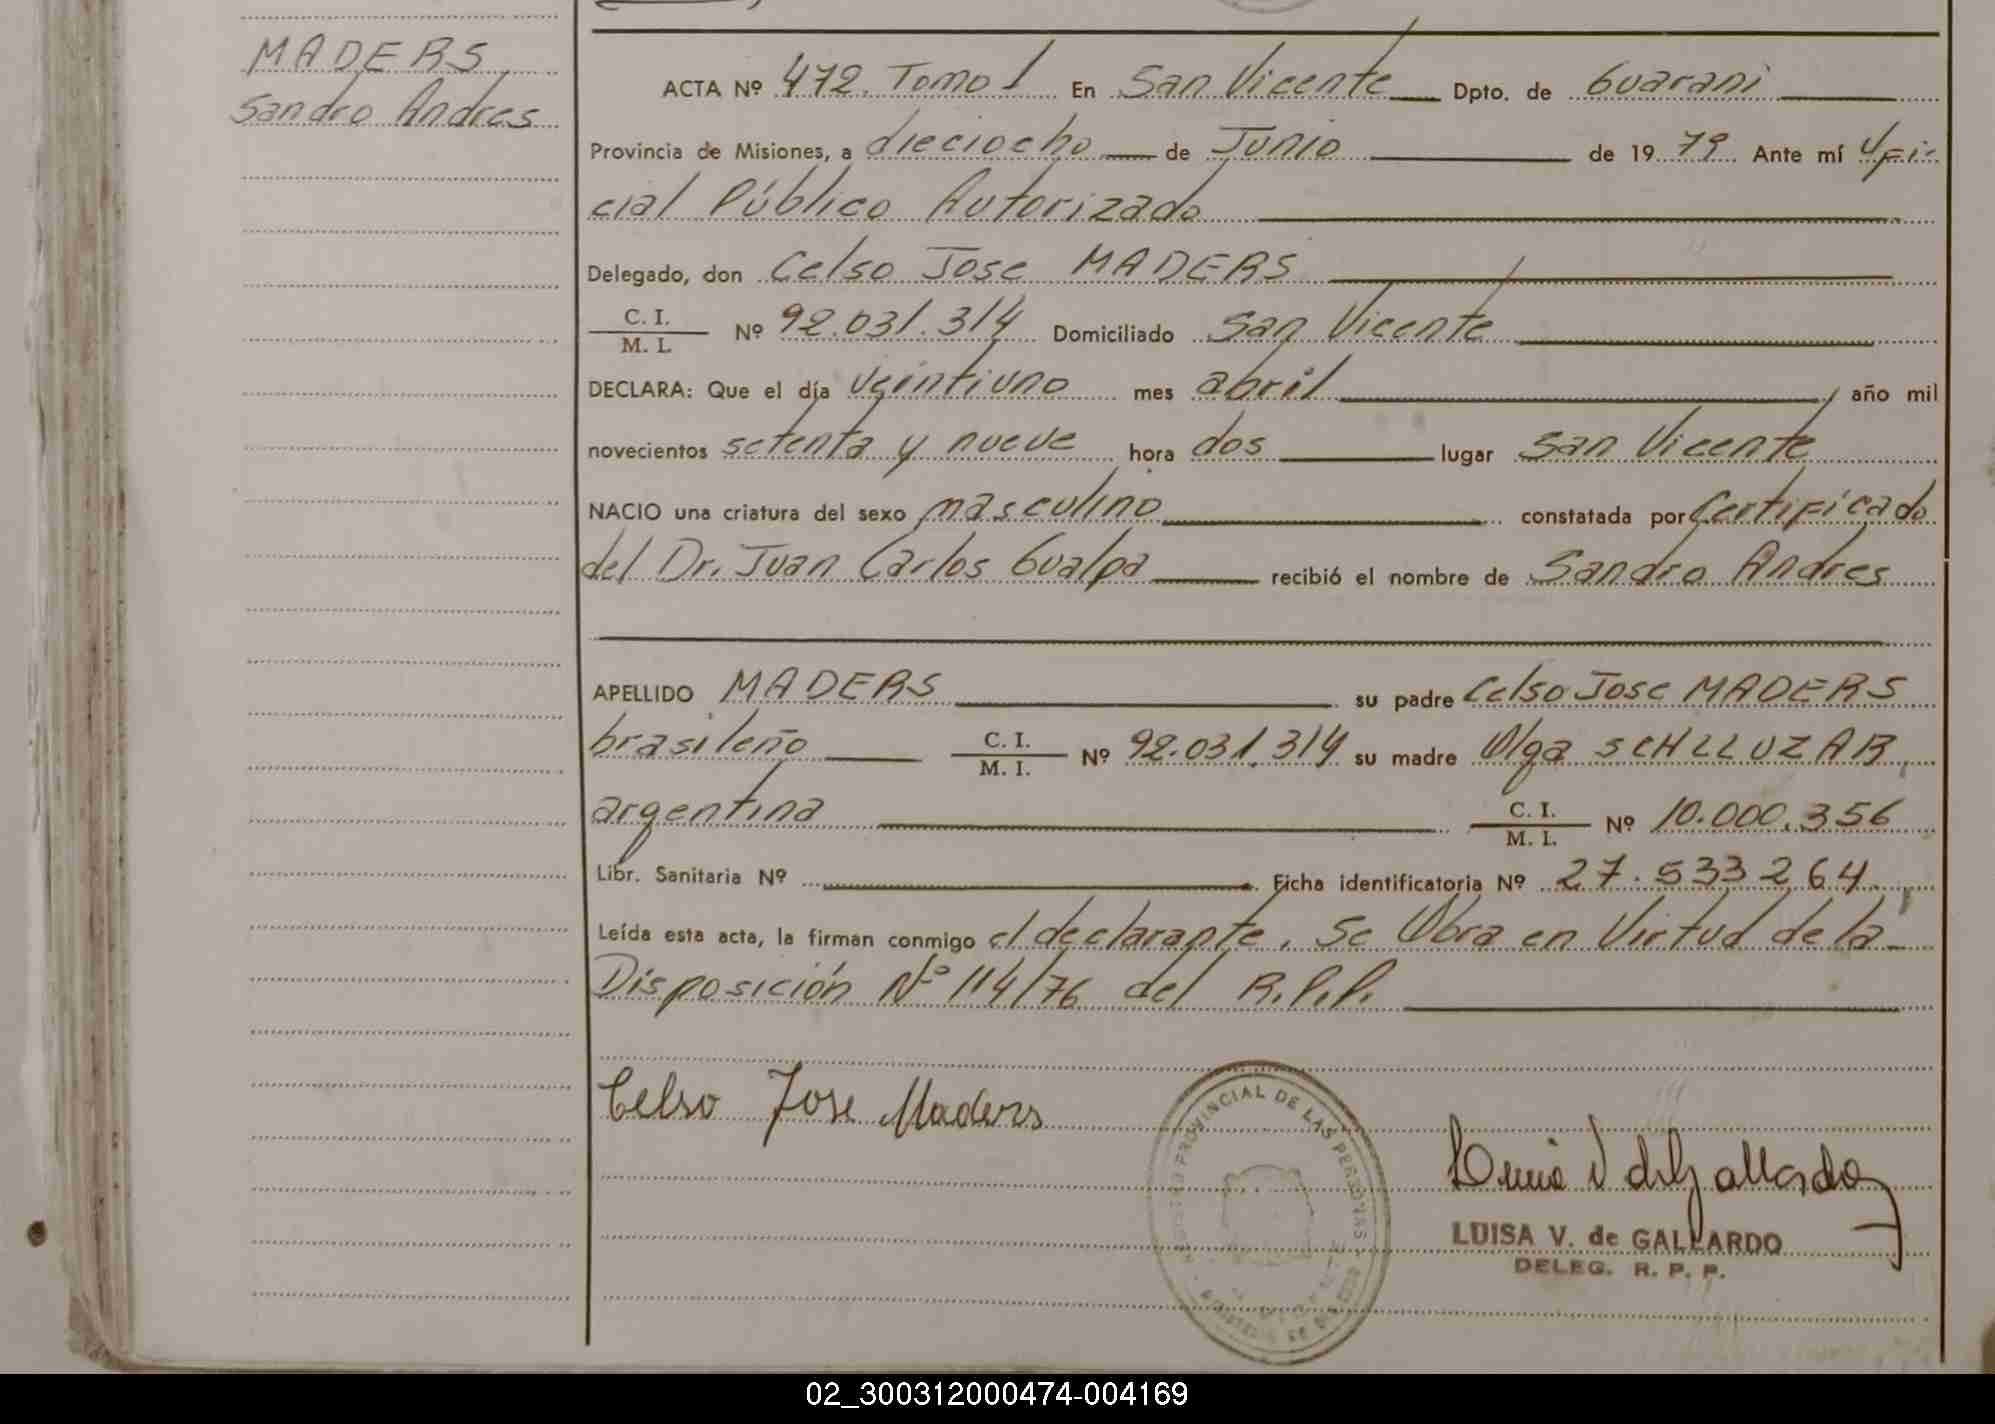 MADERS
Sandro Andres
ACTA Nº 472. Tomo 1 En San Vicente Dpto. de Guarani
Provincia de Misiones, a dieciocho de Junio de 19 79 Ante mí Ofi-
cial Público Autorizado
Delegado, don Celso Jose MADERS
C. I.
M. I. Nº 92.031.314 Domiciliado San Vicente
DECLARA: Que el día veintiuno mes abril año mil
novecientos setenta y nueve hora dos lugar San Vicente
NACIO una criatura del sexo masculino constatada por Certificado
del Dr. Juan Carlos Gualpa recibió el nombre de Sandro Andres
APELLIDO MADERS su padre Celso Jose MADERS
brasileño C. I.
M. I. Nº 92.031.314 su madre Olga SCHLLUZAR
argentina C. I.
M. I. Nº 10.000.356
Libr. Sanitaria Nº Ficha identificatoria Nº 27.533264.
Leída esta acta, la firman conmigo el declarante. Se Obra en Virtud de la
Disposición Nº 114/76 del R.P.P.
Celso Jose Maders
REGISTRO PROVINCIAL DE LAS PERSONAS
MINISTERIO DE GOBIERNO
Luisa V de Gallardo
LUISA V. de GALLARDO
DELEG. R. P. P.
02_300312000474-004169